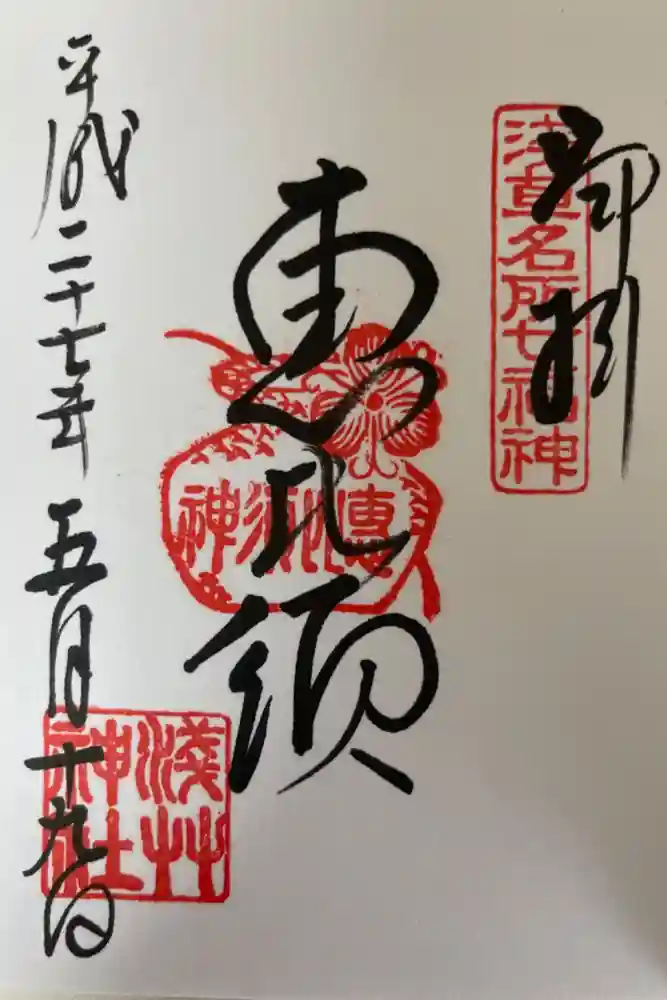 奉拝
浅草名所七福神
恵比須
恵比須神
平成二十七年五月十九日
淺草神社